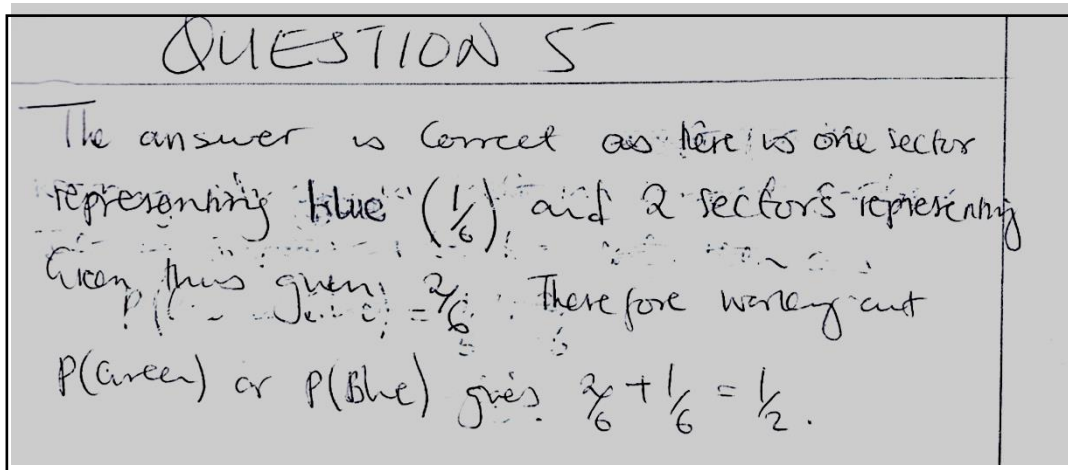 QUESTION 5
The answer is Correct as here is one sector
representing blue (1/6) and 2 sectors representing
Green, thus given 2/6. Therefore working out
P(Green) or P(Blue) gives 2/6 + 1/6 = 1/2.